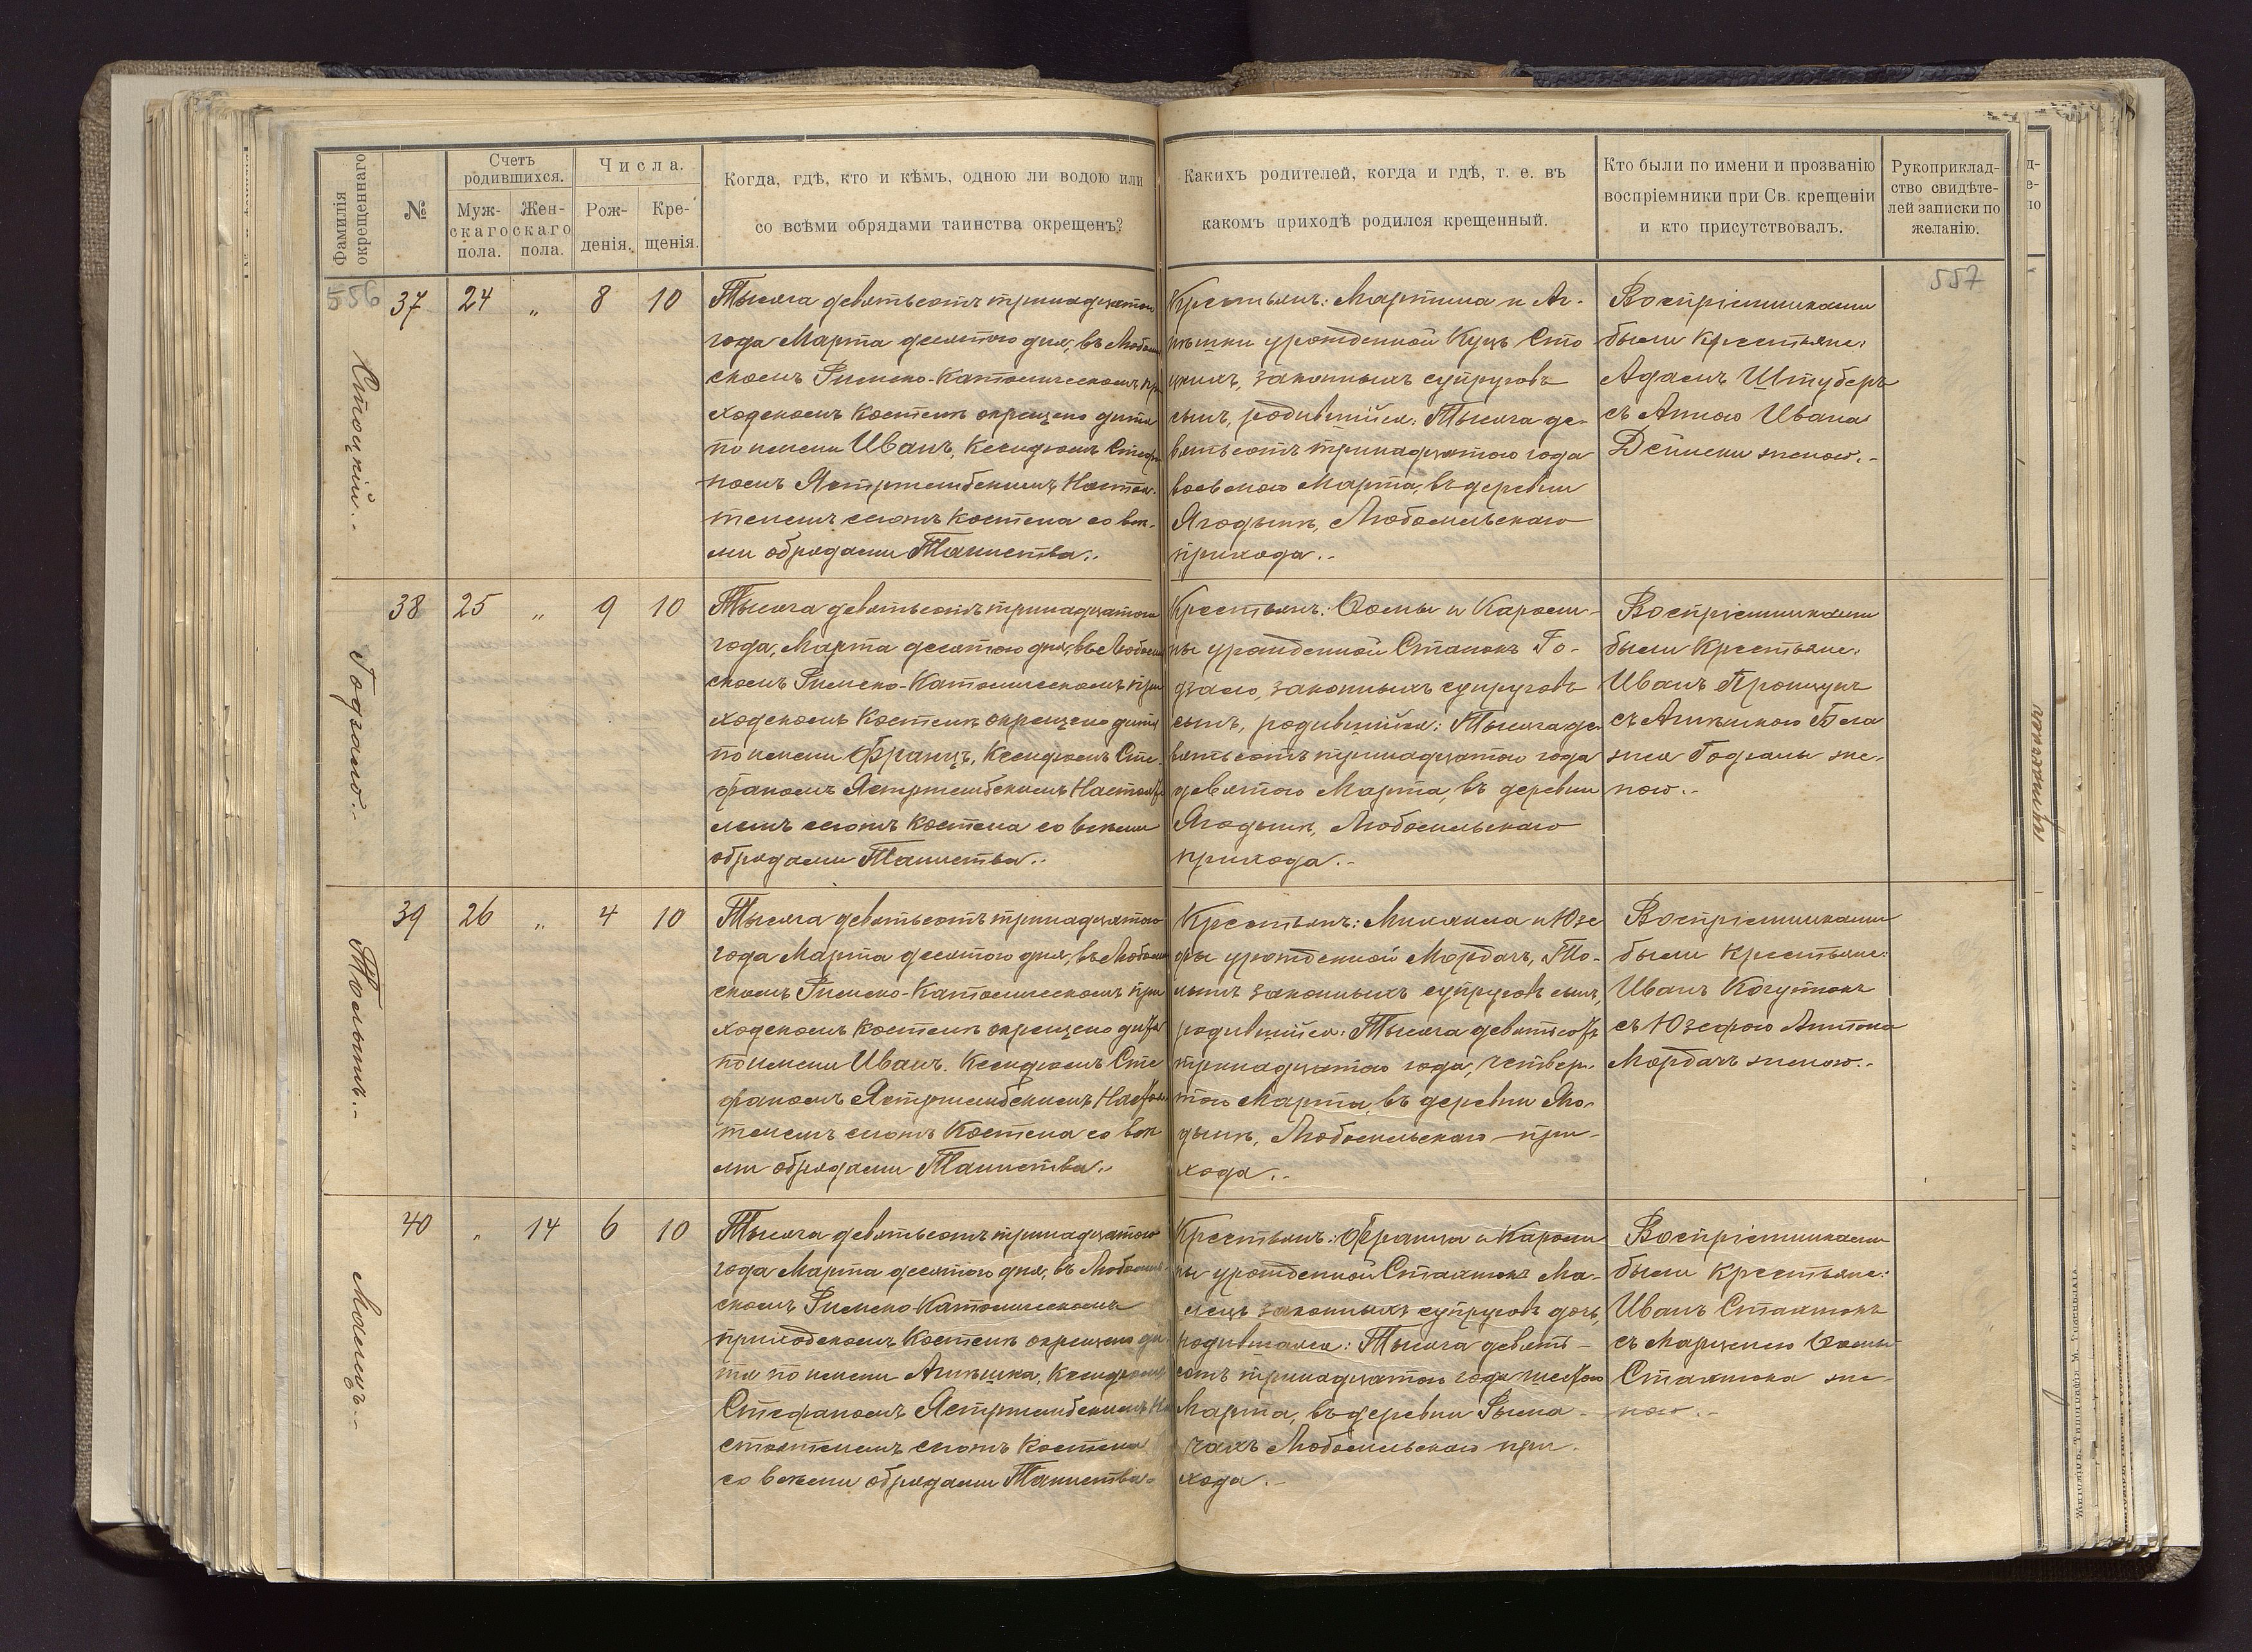 Фамилія окрещеннаго
№
Счетъ родившихся.
Мужскаго пола.
Женскаго пола.
Числа.
Рожденія.
Крещенія.
Когда, гдѣ, кто и кѣмъ, одною ли водою или
со всѣми обрядами таинства окрещенъ?
Какихъ родителей, когда и гдѣ, т. е. въ
какомъ приходѣ родился крещенный.
Кто были по имени и прозванію
воспріемники при Св. крещеніи
и кто присутствовалъ.
Рукоприклад-
ство свидѣте-
лей записки по
желанію.
556
557
Стоцкій.-
37 24 „ 8 10
Тысяча девятьсотъ тринадцатаго
года Марта десятаго дня, въ Любомль
скомъ Римско-Католическомъ при
ходскомъ Костелѣ окрещено дитя
по имени Иванъ, Ксендзомъ Стефа
номъ Ястржембскимъ Настоя-
телемъ сегожъ Костела со всѣ-
ми обрядами Таинства.-
Крестьянъ: Мартина и Аг-
нѣшки урожденной Куцъ Сто
цкихъ, законныхъ супруговъ
сынъ, родившійся: Тысяча де-
вятьсотъ тринадцатаго года
восьмого Марта, въ деревни
Ягодынѣ, Любомльскаго
прихода.-
Воспріемниками
были Крестьяне:
Адамъ Штуберъ
съ Анною Ивана
женою.-
Годзало.-
38 25 „ 9 10
Тысяча девятьсотъ тринадцатаго
года, Марта десятого дня, въ Любомль
скомъ Римско-Католическомъ при
ходскомъ Костелѣ окрещено дитя
по имени Францъ, Ксендзомъ Сте-
фаномъ Ястржембскимъ Настояте
лемъ сегожъ Костела со всѣми
обрядами Таинства.-
Крестьянъ: Ѳомы и Кароли-
ны урожденной Станокъ Го-
дзало, законныхъ супруговъ
сынъ, родившійся: Тысяча де
вятьсотъ тринадцатаго года
девятого Марта, въ деревни
Ягодынѣ, Любомльскаго
прихода.-
Воспріемниками
были Крестьяне:
Иванъ
съ Агнѣшкою Бла
жея Годзалы же-
ною.-
Толынъ.-
39 26 „ 4 10
Тысяча девятьсотъ тринадцатаго
года Марта десятого дня, въ Любомль
скомъ Римско-Католическомъ при
ходскомъ Костелѣ окрещено дитя
по имени Иванъ. Ксендзомъ Сте
фаномъ Ястржембскимъ Настоя
телемъ сегожъ Костела со всѣ
ми обрядами Таинства.-
Крестьянъ: Михаила и Юзе
фы урожденной Мордачъ, То-
лынъ законныхъ супруговъ сынъ,
родившійся: Тысяча девятьсотъ
тринадцатаго года, четвер-
того Марта, въ деревни Яго-
дынѣ, Любомльскаго при-
хода.-
Воспріемниками
были Крестьяне:
Иванъ Когутокъ
съ Юзефою Антона
Мордачъ женою.-
Малецъ.-
40 „ 14 6 10
Тысяча девятьсотъ тринадцатаго
года Марта десятого дня, въ Любомль-
скомъ Римско-Католическомъ
приходскомъ Костелѣ окрещено ди-
тя по имени Агнѣшка, Ксендзомъ
Стефаномъ Ястржембскимъ На
стоятелемъ сегожъ Костела
со всѣми обрядами Таинства.-
Крестьянъ: Франца и Кароли
ны урожденной Стахнюкъ Ма-
лецъ законныхъ супруговъ дочь,
родившаяся: Тысяча девять-
сотъ тринадцатаго года шестого
Марта, въ деревни Рыма-
чахъ Любомльскаго при-
хода.-
Воспріемниками
были Крестьяне:
Иванъ Стахнюкъ
съ Марцелею Ѳомы
Стахнюка же-
ною.-